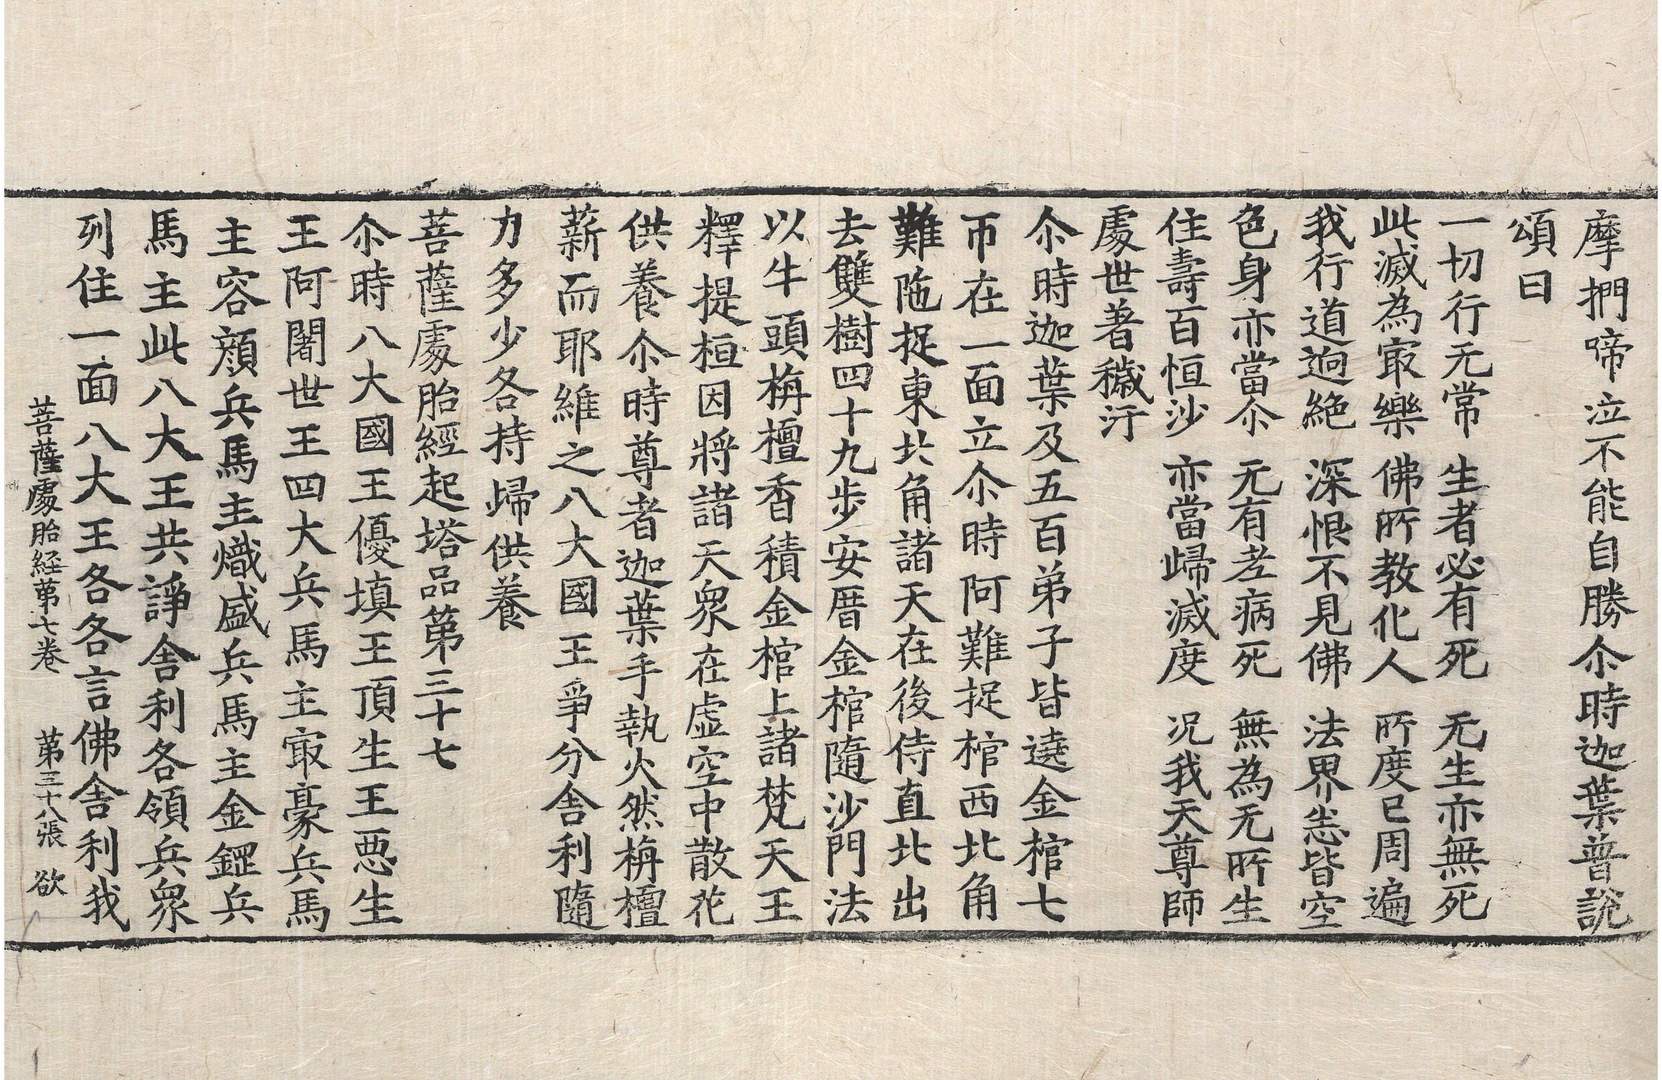 摩捫啼泣不能自勝尒時迦葉普說
頌曰
一切行无常 生者必有死 无生亦無死
此滅為㝡樂 佛所教化人 所度已周遍
我行道逈絶 深恨不見佛 法界悉皆空
色身亦當尒 无有老病死 無為无所生
住壽百恒沙 亦當歸滅度 况我天尊師
處世著穢汙
尒時迦葉及五百弟子皆遶金棺七
帀在一面立尒時阿難捉棺西北角
難陁捉東北角諸天在後侍直北出
去雙樹四十九步安厝金棺隨沙門法
以牛頭栴檀香積金棺上諸梵天王
釋提桓因將諸天衆在虛空中散花
供養尒時尊者迦葉手執火然栴檀
薪而耶維之八大國王爭分舍利隨
力多少各持歸供養
菩薩處胎經起塔品第三十七
尒時八大國王優填王頂生王惡生
王阿闍世王四大兵馬主㝡豪兵馬
主容顔兵馬主熾盛兵馬主金鋥兵
馬主此八大王共諍舍利各領兵衆
列住一面八大王各各言佛舍利我
菩薩處胎經第七卷 第三十八張 欲